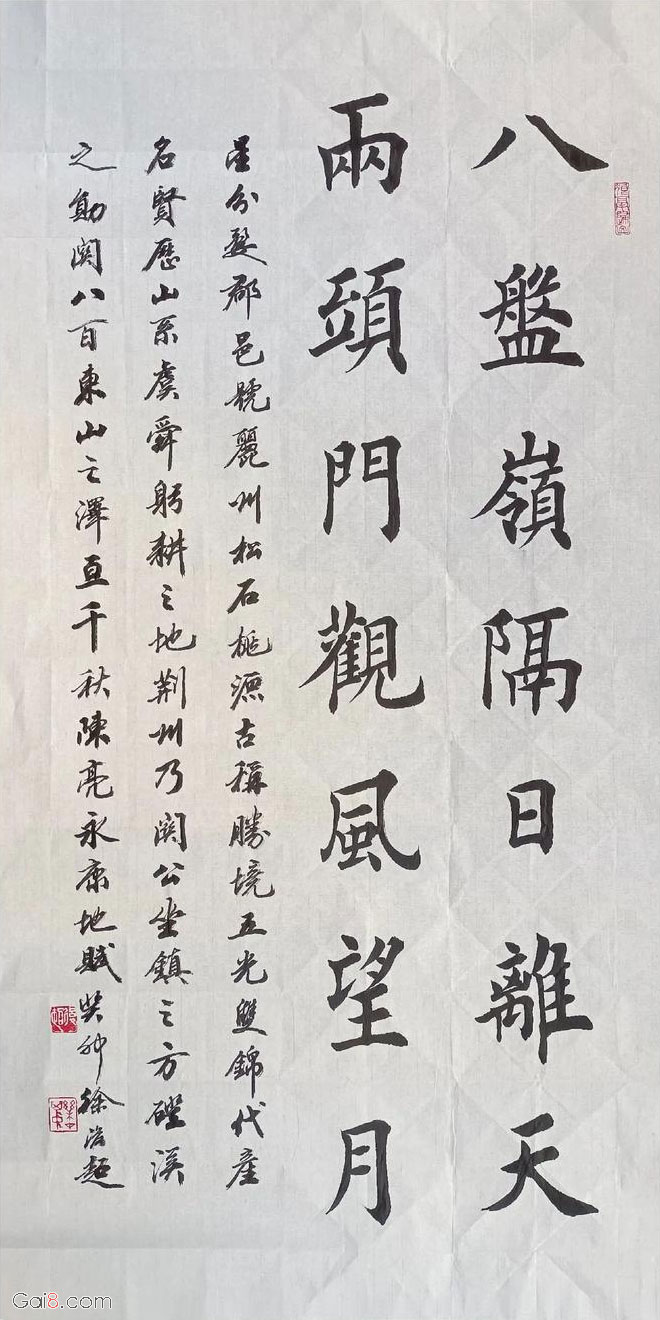 八盤嶺隔日離天
兩頭門觀風望月
星分婺郡邑號麗州松石桃源古稱勝境五光雙錦代產
名賢歷山系虞舜躬耕之地荊州乃関公坐鎮之方磻溪
之勛関八百東山之澤亘千秋陳亮永康地賦癸卯徐浩超
Gai8.com